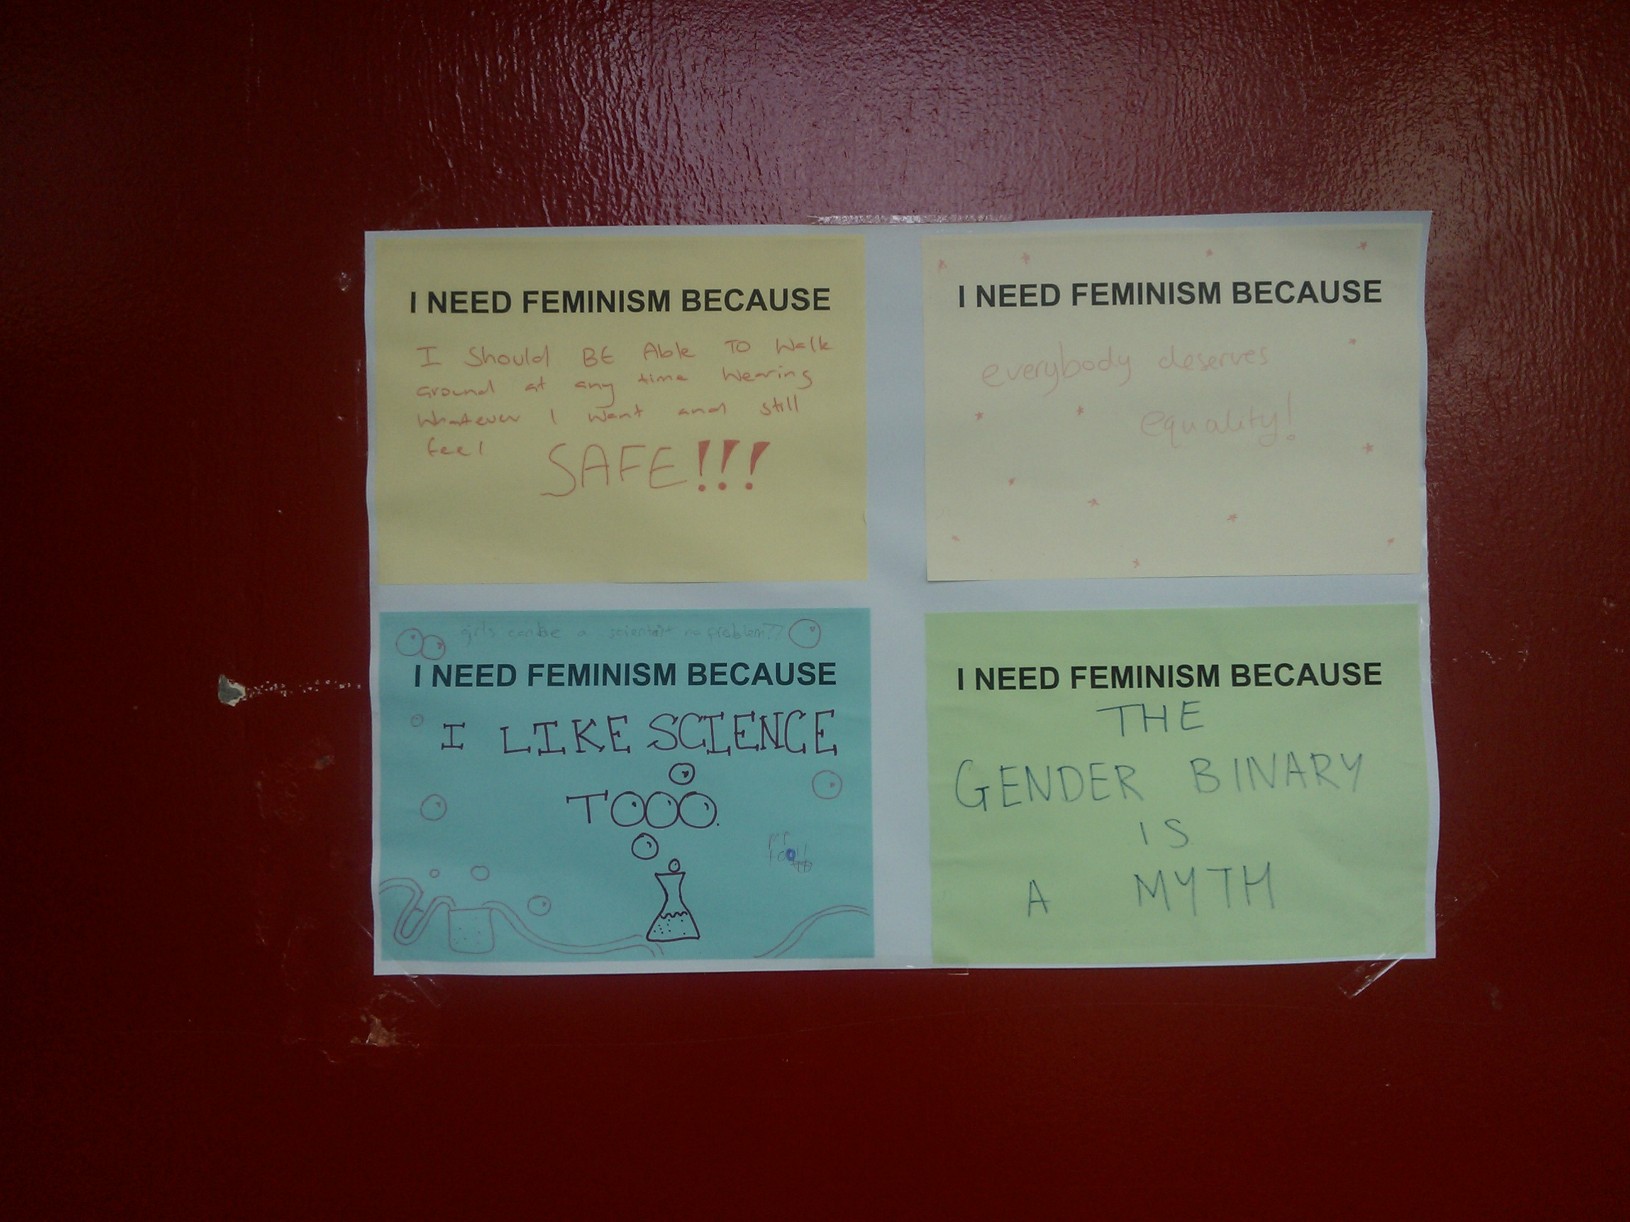 I NEED FEMINISM BECAUSE
I Should BE Able TO Walk
around at any time Wearing
Whatever I Want and still
feel
SAFE!!!
I NEED FEMINISM BECAUSE
everybody deserves
equality!
girls can be a scientist no problem??
I NEED FEMINISM BECAUSE
I LIKE SCIENCE
TOOO.
I NEED FEMINISM BECAUSE
THE
GENDER BINARY
IS
A MYTH